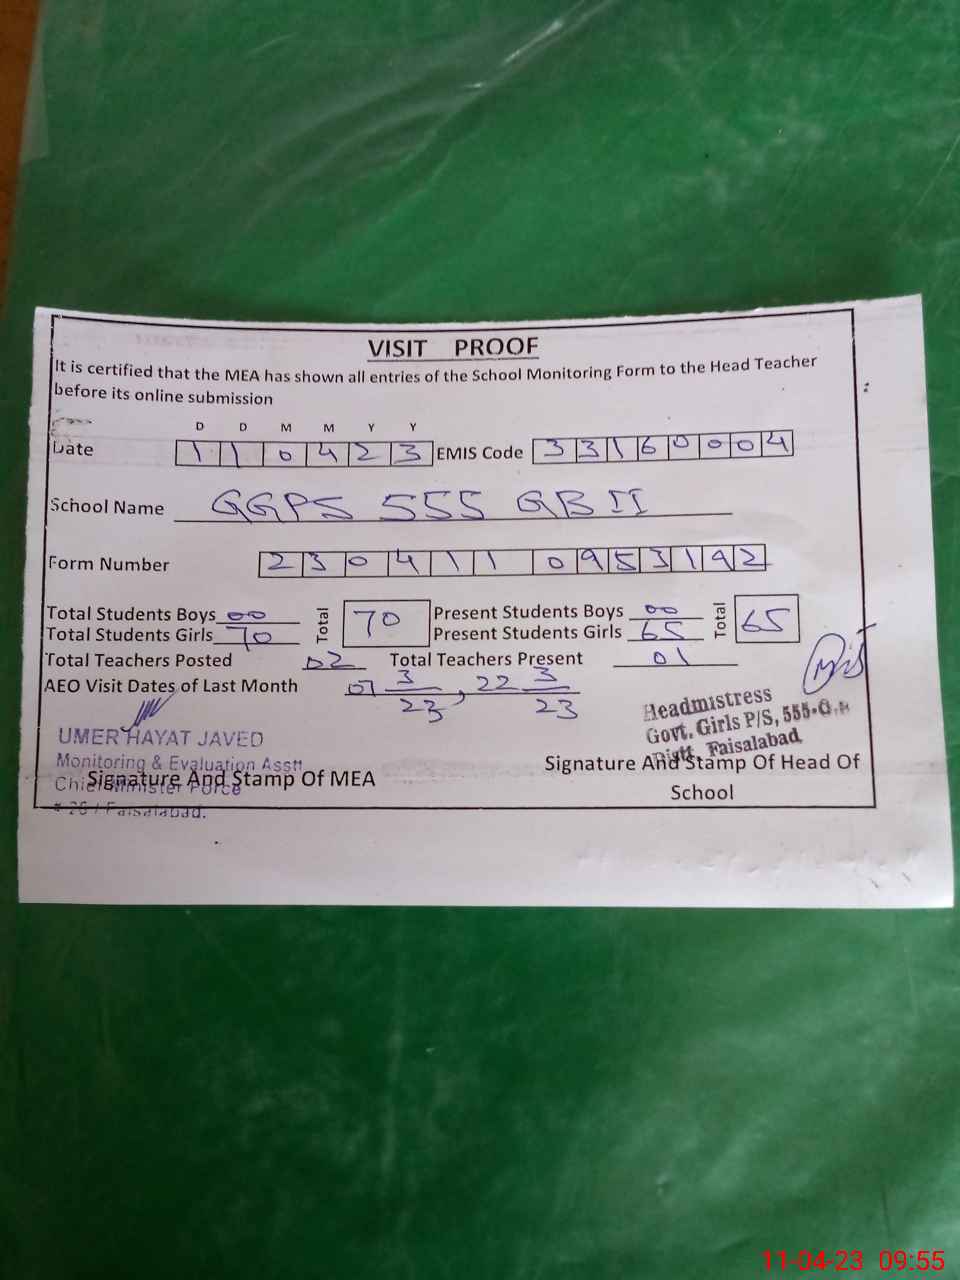 VISIT PROOF
It is certified that the MEA has shown all entries of the School Monitoring Form to the Head Teacher
before its online submission
D D M M Y Y
Date 1 1 0 4 2 3 EMIS Code 3 3 1 6 0 0 0 4
School Name GGPS 555 GB II
Form Number 2 3 0 4 1 1 0 9 5 3 1 9 2
Total Students Boys 00 Total 70 Present Students Boys 00 Total 65
Total Students Girls 70 Present Students Girls 65
Total Teachers Posted 02 Total Teachers Present 01
AEO Visit Dates of Last Month 07 3/23, 22 3/23
UMER HAYAT JAVED
Monitoring & Evaluation Asstt
Chief Minister Force
Faisalabad.
Signature And Stamp Of MEA
Headmistress
Govt. Girls P/S, 555-G.B
Distt. Faisalabad
Signature And Stamp Of Head Of
School
11-04-23 09:55